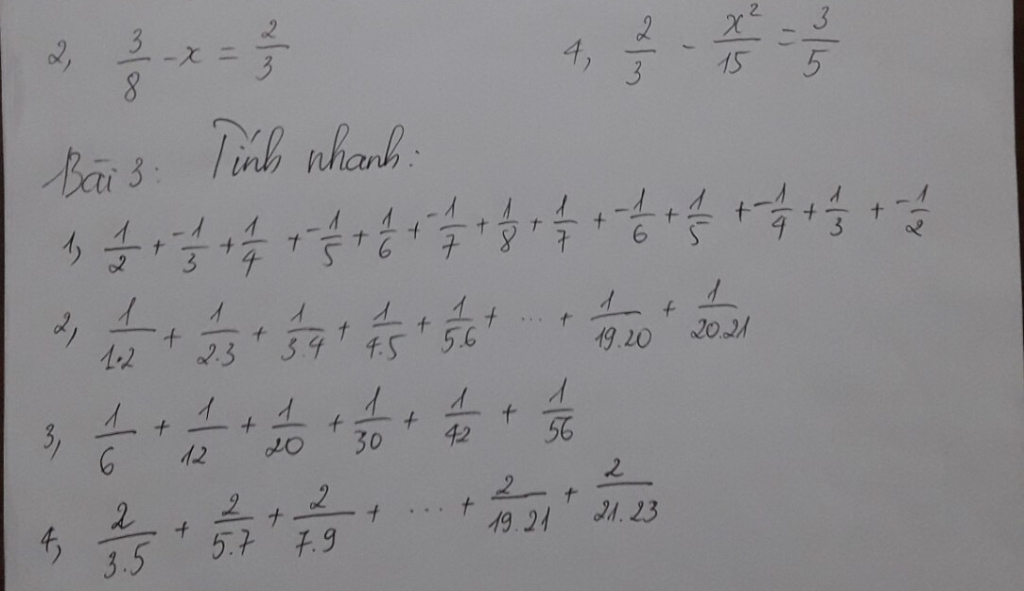 2, 3/8 - x = 2/3 4, 2/3 - x²/15 = 3/5
Bài 3: Tính nhanh:
1, 1/2 + -1/3 + 1/4 + -1/5 + 1/6 + -1/7 + 1/8 + 1/7 + -1/6 + 1/5 + -1/4 + 1/3 + -1/2
2, 1/1.2 + 1/2.3 + 1/3.4 + 1/4.5 + 1/5.6 + ... + 1/19.20 + 1/20.21
3, 1/6 + 1/12 + 1/20 + 1/30 + 1/42 + 1/56
4, 2/3.5 + 2/5.7 + 2/7.9 + ... + 2/19.21 + 2/21.23